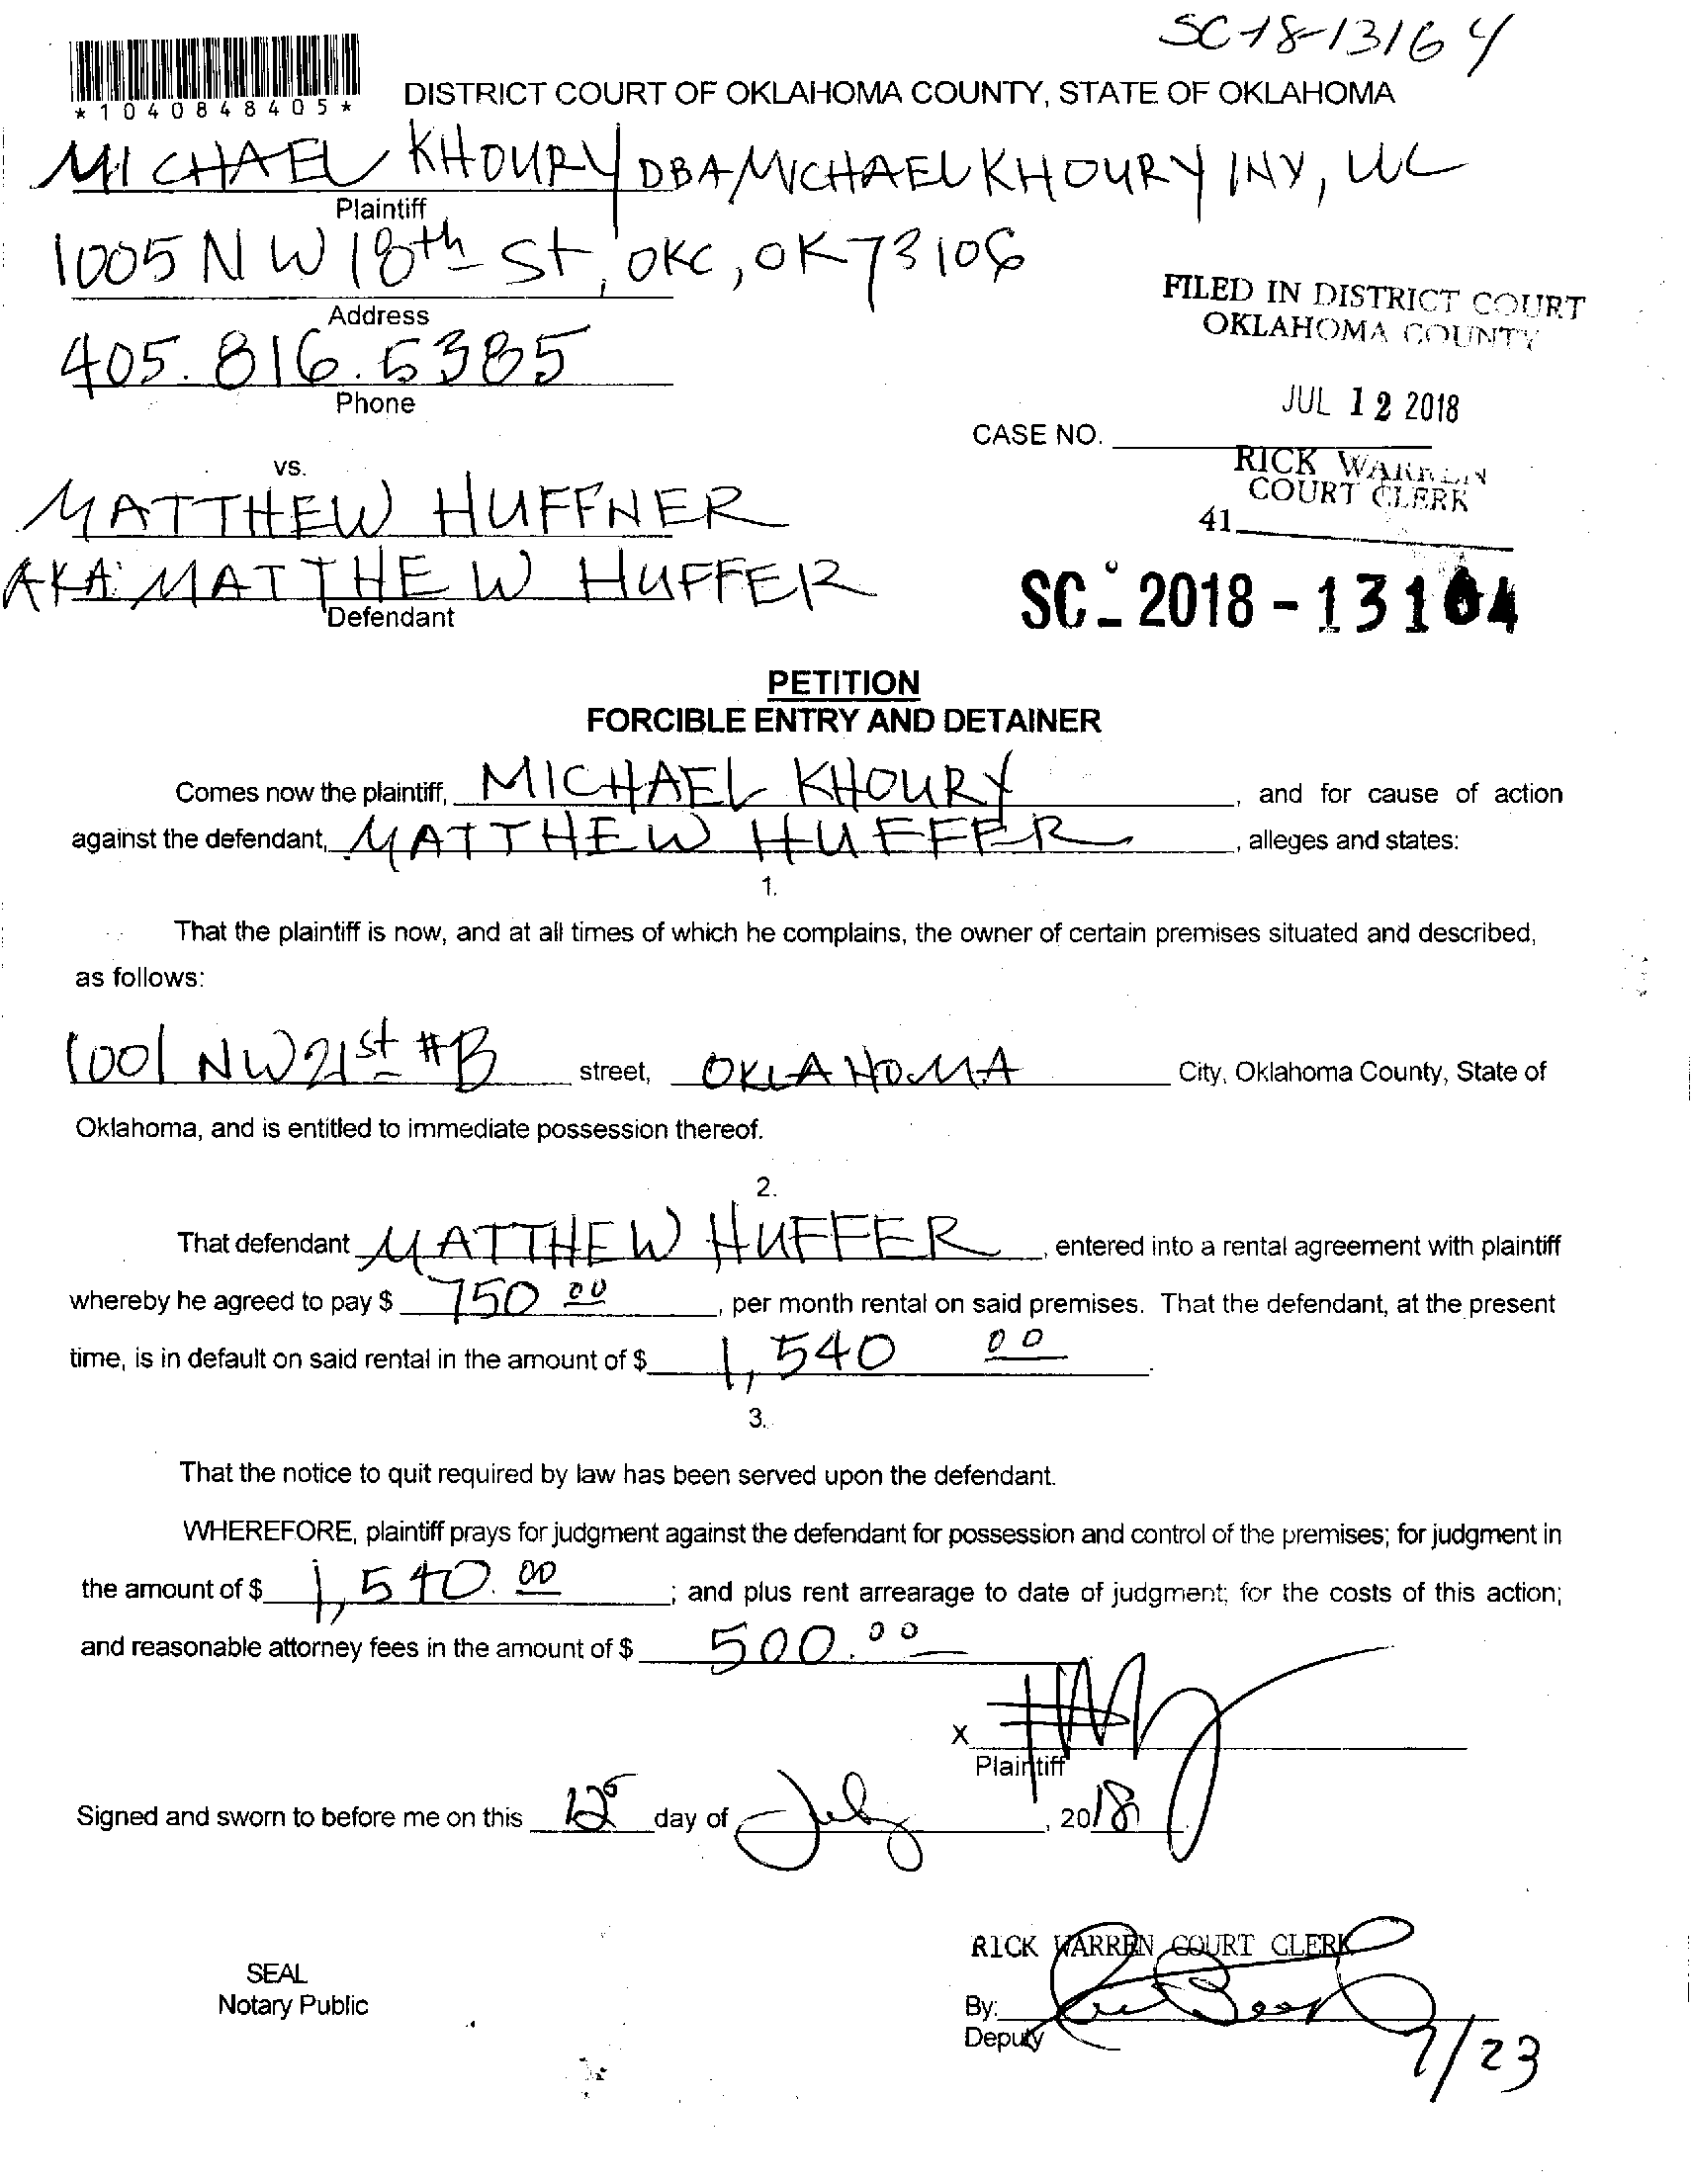 SC-18-13164
*1040848405*
DISTRICT COURT OF OKLAHOMA COUNTY, STATE OF OKLAHOMA
MICHAEL KHOURY DBA MICHAEL KHOURY INV, LLC
Plaintiff
1005 NW 18th St, OKC, OK 73106
Address
FILED IN DISTRICT COURT
OKLAHOMA COUNTY
405.816.5385
Phone
JUL 12 2018
CASE NO.
RICK WARREN
COURT CLERK
41
vs.
MATTHEW HUFFNER
AKA MATTHEW HUFFER
Defendant
SC-2018-13164
PETITION
FORCIBLE ENTRY AND DETAINER
Comes now the plaintiff, MICHAEL KHOURY, and for cause of action
against the defendant, MATTHEW HUFFER, alleges and states:
1.
That the plaintiff is now, and at all times of which he complains, the owner of certain premises situated and described,
as follows:
1001 NW 21st #B street, OKLAHOMA City, Oklahoma County, State of
Oklahoma, and is entitled to immediate possession thereof.
2.
That defendant MATTHEW HUFFER, entered into a rental agreement with plaintiff
whereby he agreed to pay $ 750 00, per month rental on said premises. That the defendant, at the present
time, is in default on said rental in the amount of $ 1,540 00.
3.
That the notice to quit required by law has been served upon the defendant.
WHEREFORE, plaintiff prays for judgment against the defendant for possession and control of the premises; for judgment in
the amount of $ 1,540.00; and plus rent arrearage to date of judgment; for the costs of this action;
and reasonable attorney fees in the amount of $ 500.00
X
Plaintiff
Signed and sworn to before me on this 12 day of July, 2018.
RICK WARREN COURT CLERK
SEAL
Notary Public
By:
Deputy
7/23